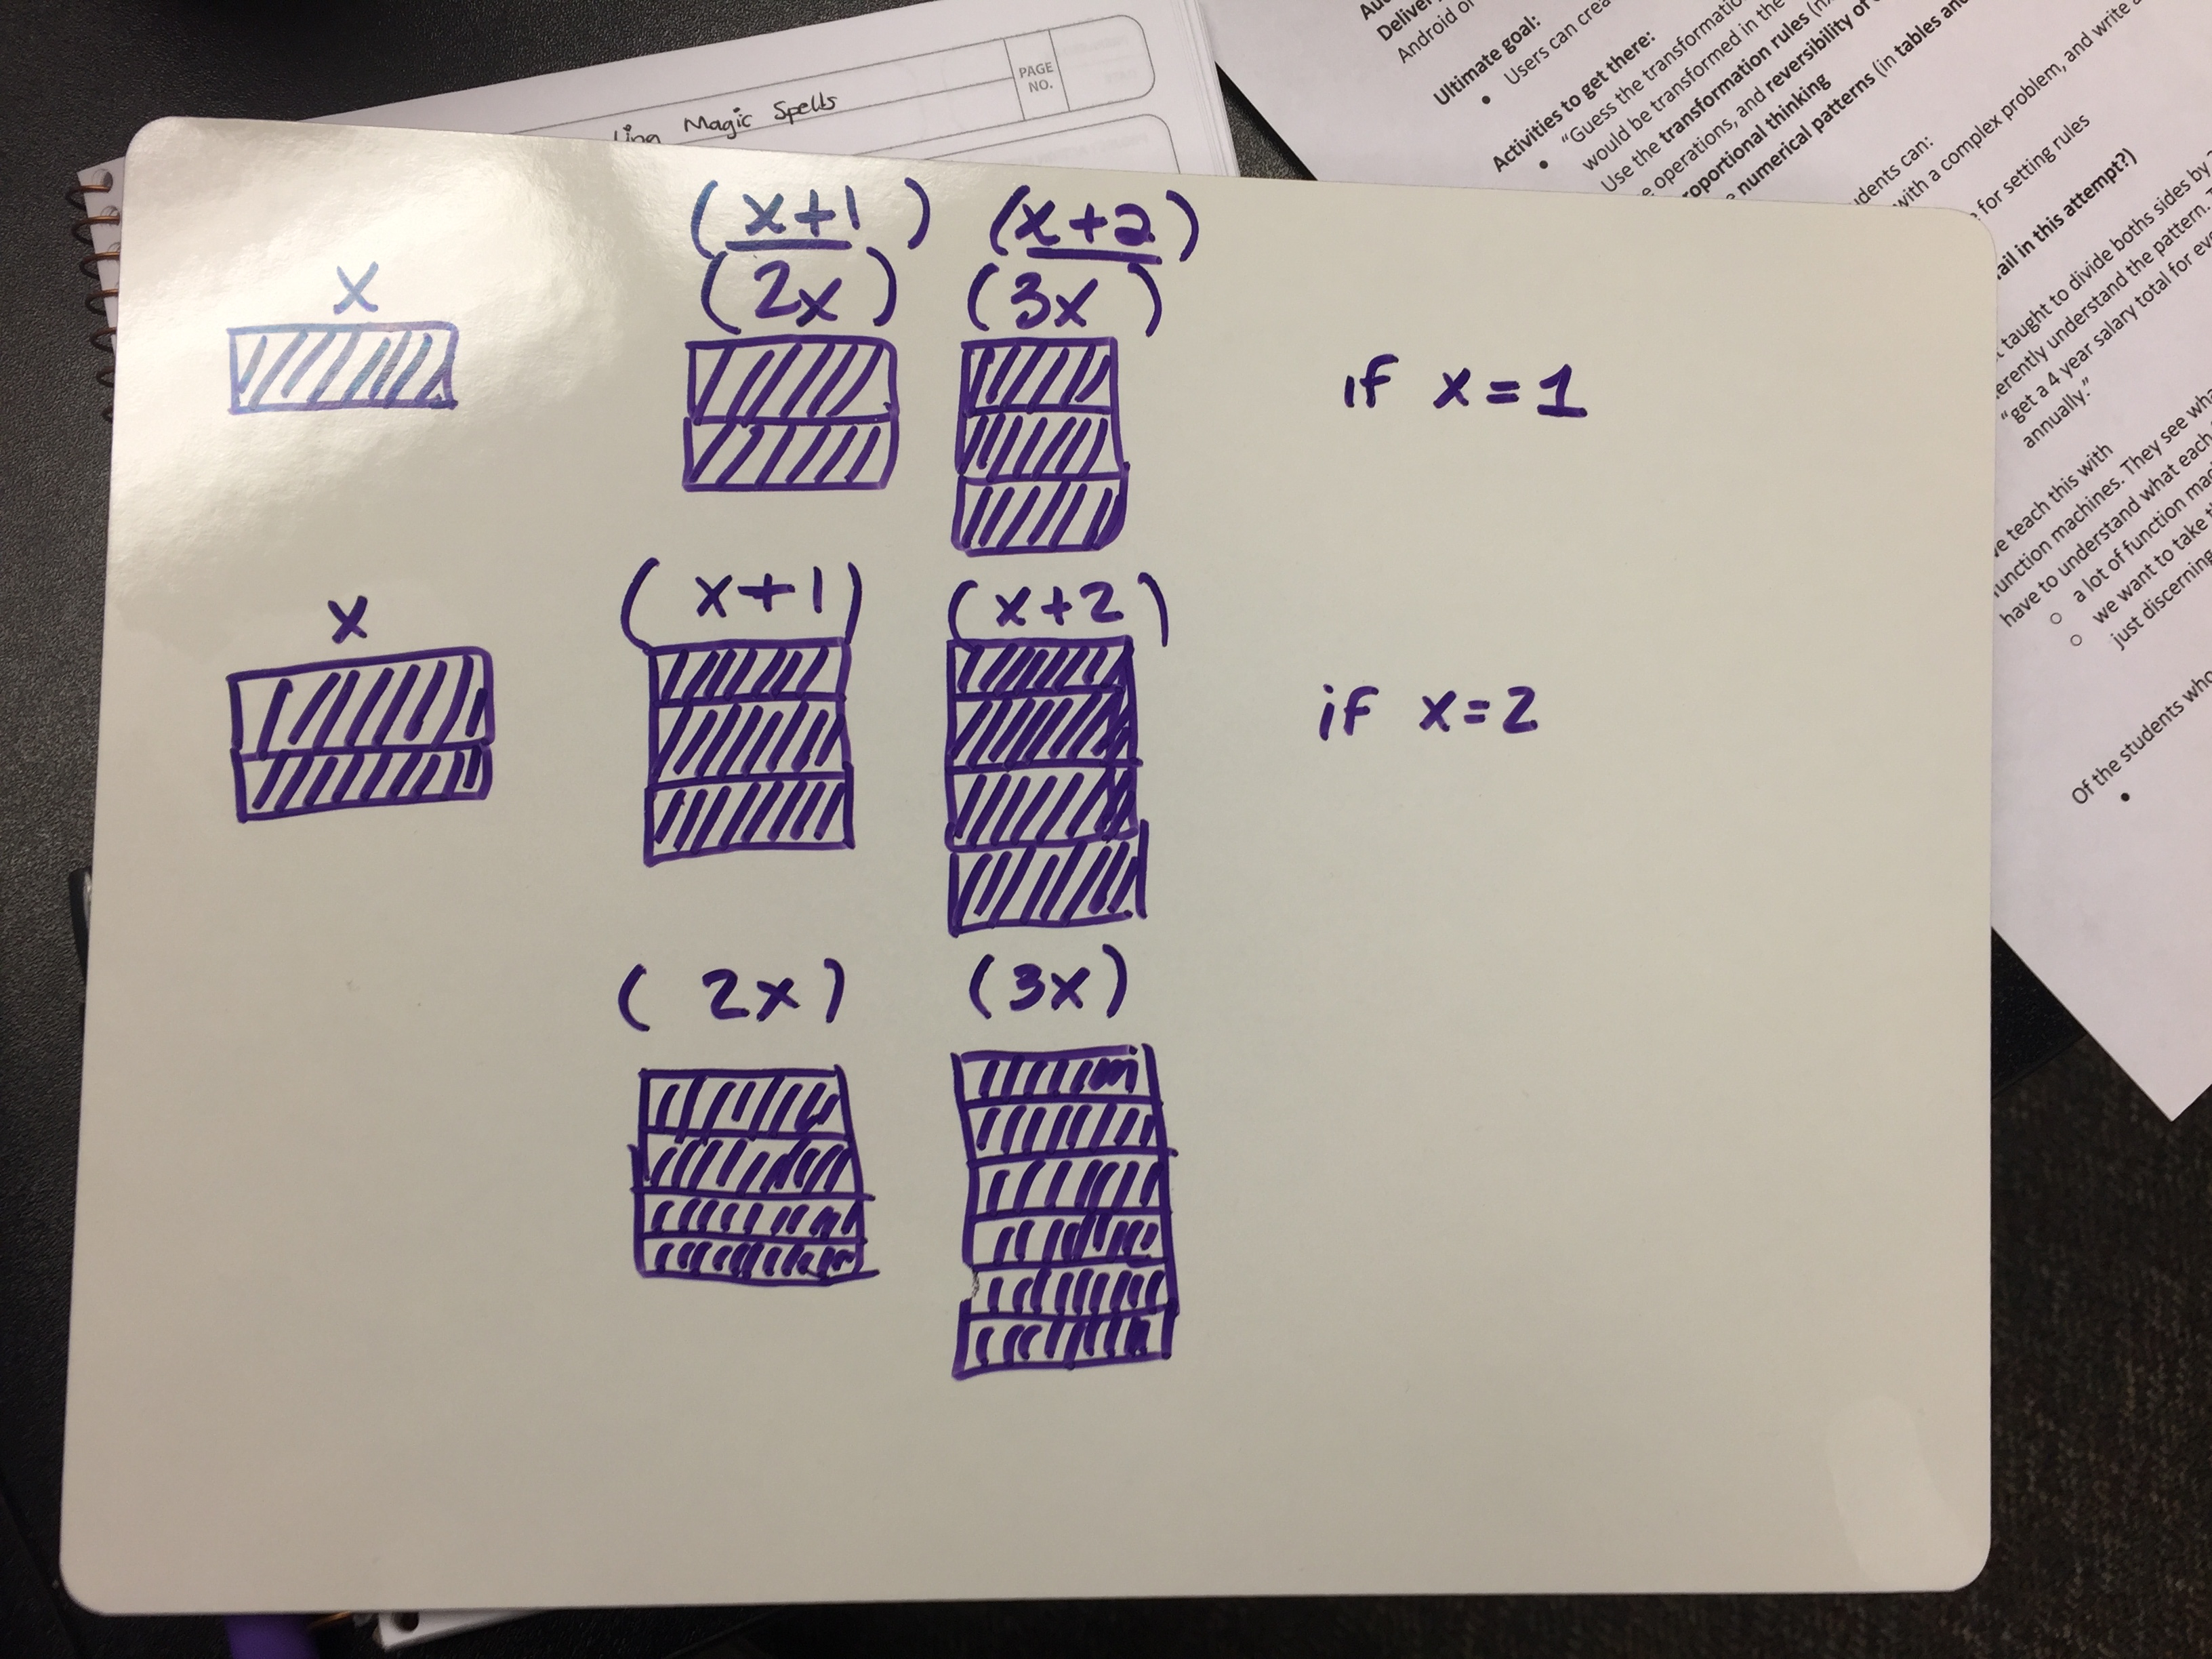 x (x+1) (x+2)
(2x) (3x) if x = 1
x (x+1) (x+2) if x=2
(2x) (3x)
Magic Spells
PAGE
NO.
Deliver
Android or
Ultimate goal:
• Users can crea
Activities to get there:
• "Guess the transformatio
would be transformed in the
Use the transformation rules (n
operations, and reversibility of
proportional thinking
numerical patterns (in tables an
udents can:
with a complex problem, and write
for setting rules
ail in this attempt?)
t taught to divide boths sides by
erently understand the pattern.
"get a 4 year salary total for eve
annually."
ve teach this with
function machines. They see wha
have to understand what each
○ a lot of function mac
○ we want to take th
just discerning
Of the students who
•